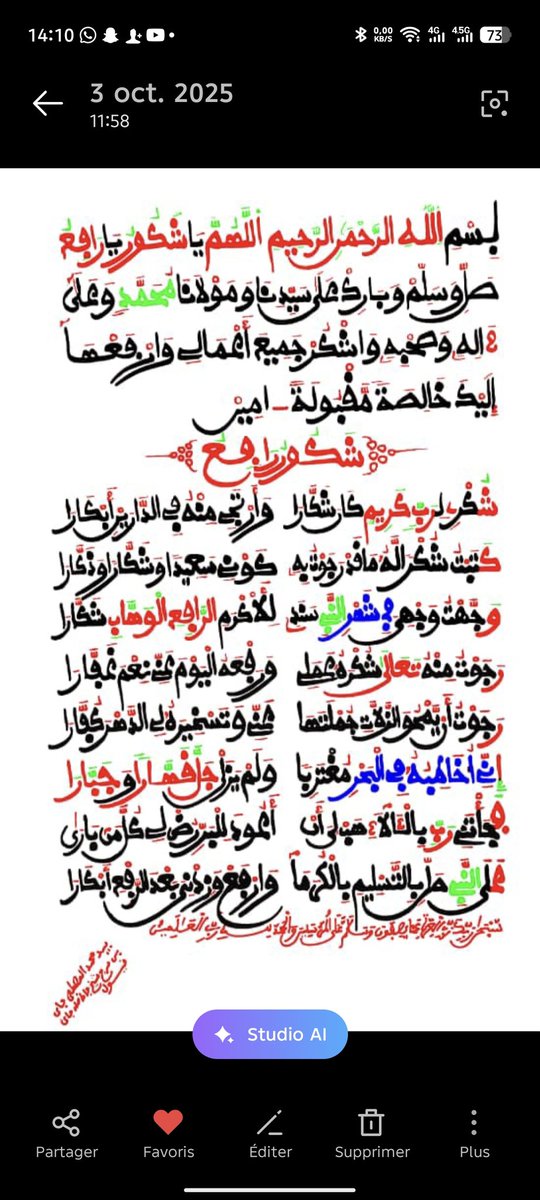 14:10
0,00 KB/S 4G 4.5G 73
3 oct. 2025
11:58
بسم الله الرحمن الرحيم اللهم يا شكور يا رافع
صل وسلم وبارك على سيدنا ومولانا محمد وعلى
ءاله وصحبه واشكر جميع أعمالي وارفعها
إليك خالصة مقبولة ـ امين
شكور رافع
شكري لرب كريم كان شكارا وأرتجي منه في الدارين أبكارا
كتبت شكر اله ما قد رجوت به كوني سعيدا وشكارا وذكارا
وجهت وجهي في شهر النبي للأكرم الرافع الوهاب شكارا
رجوت منه تعالى شكره عملي ورفعه اليوم عني نعم غفارا
رجوت أن يمحو الزلات جملتها عني وتسخيره لي الدهر كفارا
إني أخاطبه في البحر مغتربا ولم يزل جل قهارا وجبارا
رب هب لي أن أعوذ للبر
على النبي صل بالتسليم بالكرما وارفع وزدني بعد الرفع أبكارا
Studio AI
Partager Favoris Éditer Supprimer Plus